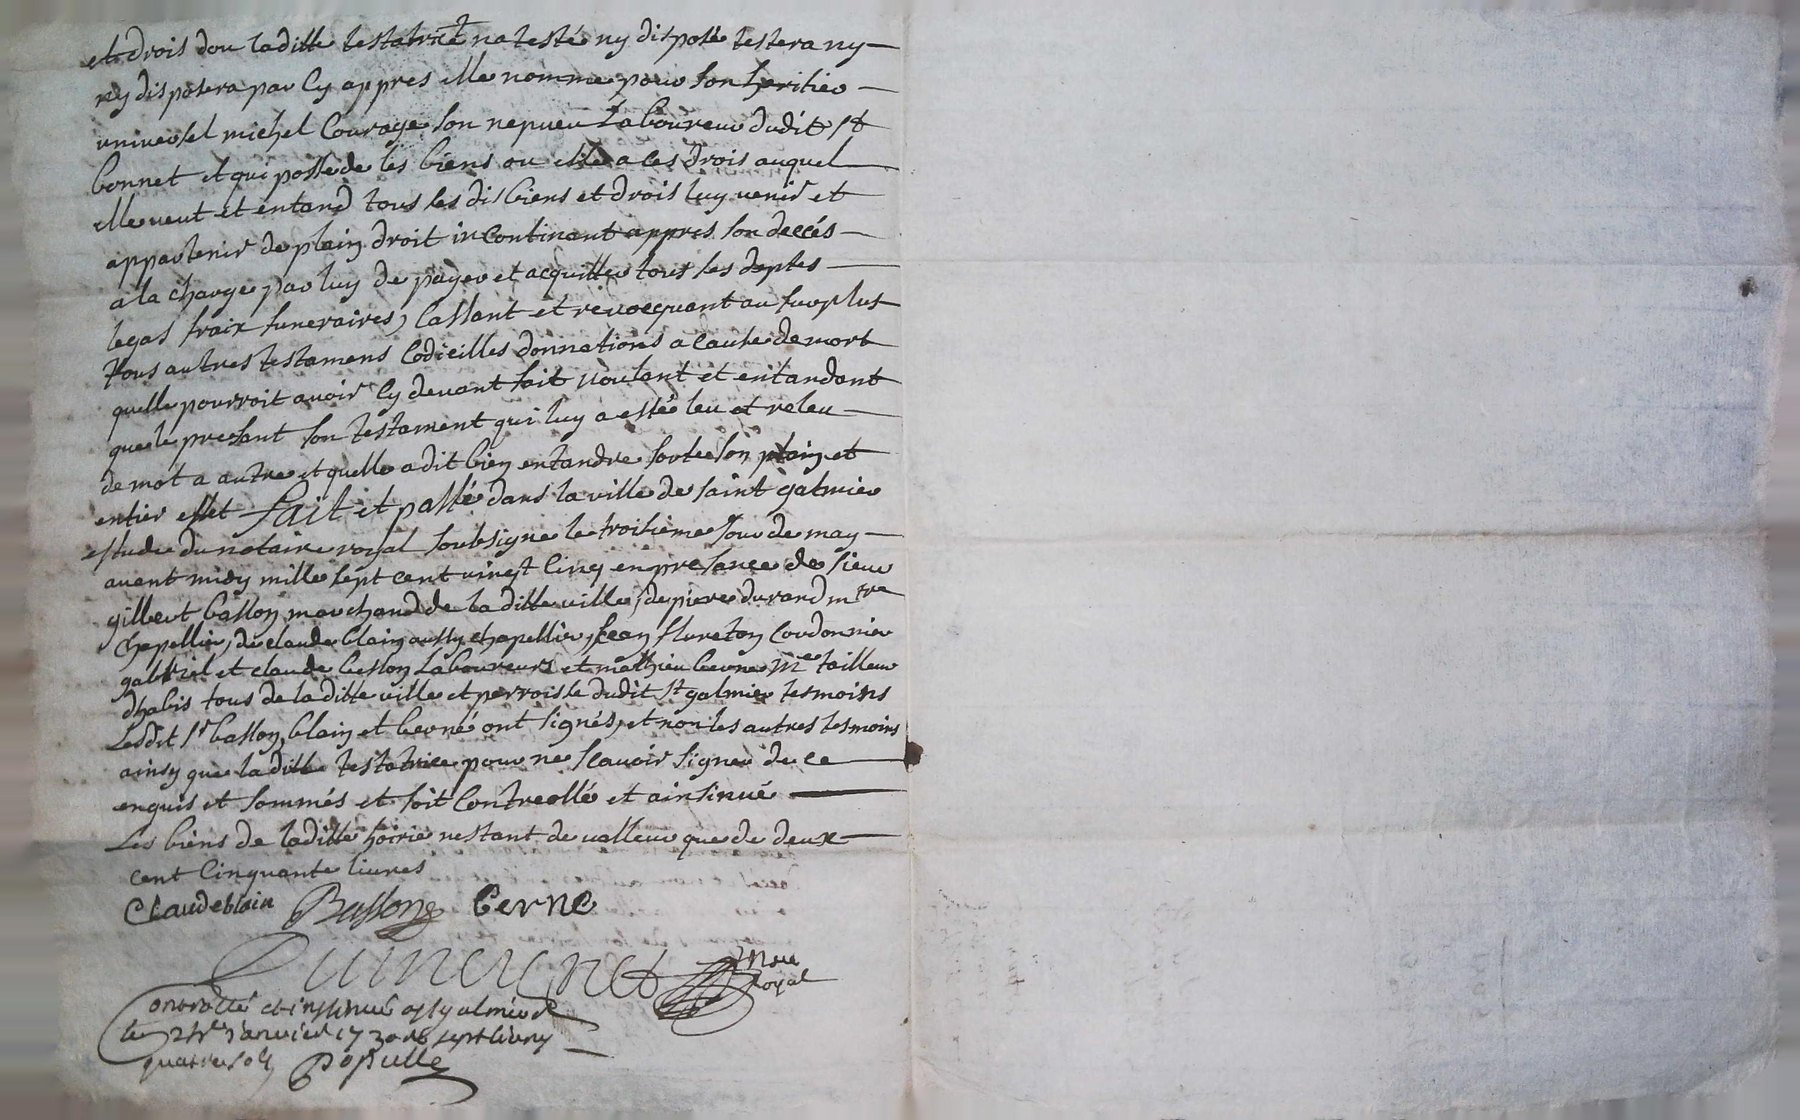 et drois dont laditte testatrice na testé ny disposé testera ny
ny disposera par cy appres elle nomme pour son heritier
universel michel Courage son nepveu Laboureur dudit St
bonnet et qui possede les biens ou elle a ces drois auquel
elle veut et entand tous les dis biens et drois luy venir et
appartenir de plain droit incontinant appres son deccés
a la charge par luy de payer et acquitter tous ses deptes
legas fraix funeraires, Cassant et revocquant au surplus
tous autres testamens Codicilles donnations a cause de mort
quelle pourroit avoir cy devant fait voulant et entandant
que le presant son testament qui luy a esté leu et releu
de mot a autre et quelle a dit bien entandre sorte son plain et
entier effet fait et passé dans la ville de saint galmier
estude du notaire royal soubsigné le troisieme Jour de may
avant midy mille sept cent vingt cinq en presance de sieur
gilbert basson marchand de laditte ville, de piere durand mtre
Chapellier, de claude blain aussy chapellier, Jean fleureton Cordonnier
gabriel et claude besson Laboureurs et mathieu berne Me tailleur
dhabis tous de laditte ville et perroisse dudit St galmier tesmoins
Lesdit Sr basson blain et berné ont signés, et non les autres tesmoins
ainsy que laditte testatrice pour ne scavoir signer de ce
enquis et sommés et soit Controollé et ainsinué
Les biens de laditte hoirie nestant de valleur que de deux
cent Cinquante livres
Claude blain Basson berne
nore
royal
Controllé et insinué a st galmier
le janvier 1730 sept livres
quatre sols